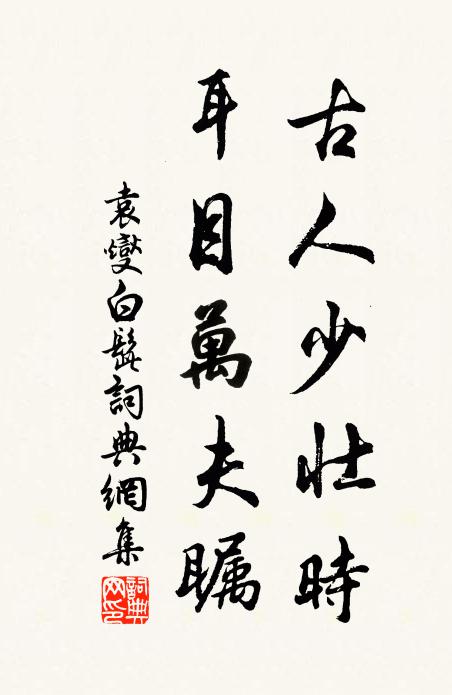 古人少壯時
耳目萬夫瞩
袁燮白髭詞典網集
詞典
网印